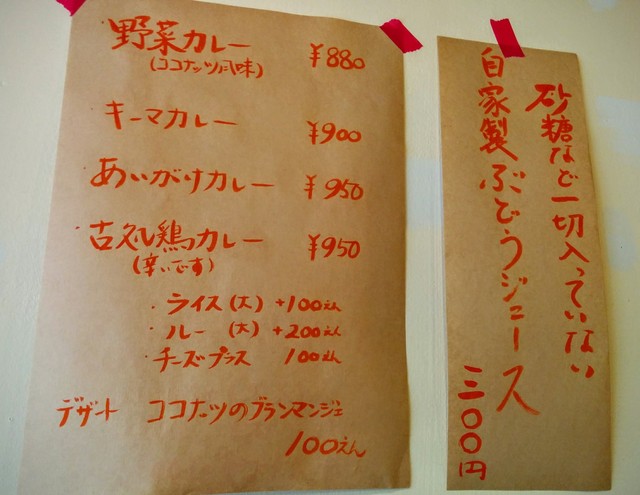 ・野菜カレー ¥880
(ココナッツ風味)
・キーマカレー ¥900
・あいがけカレー ¥950
・古処鶏カレー ¥950
(辛いです)
・ライス(大) +100えん
・ルー(大) +200えん
・チーズプラス 100えん
デザート ココナッツのブランマンジェ
100えん
砂糖など一切入っていない
自家製ぶどうジュース 三〇〇円